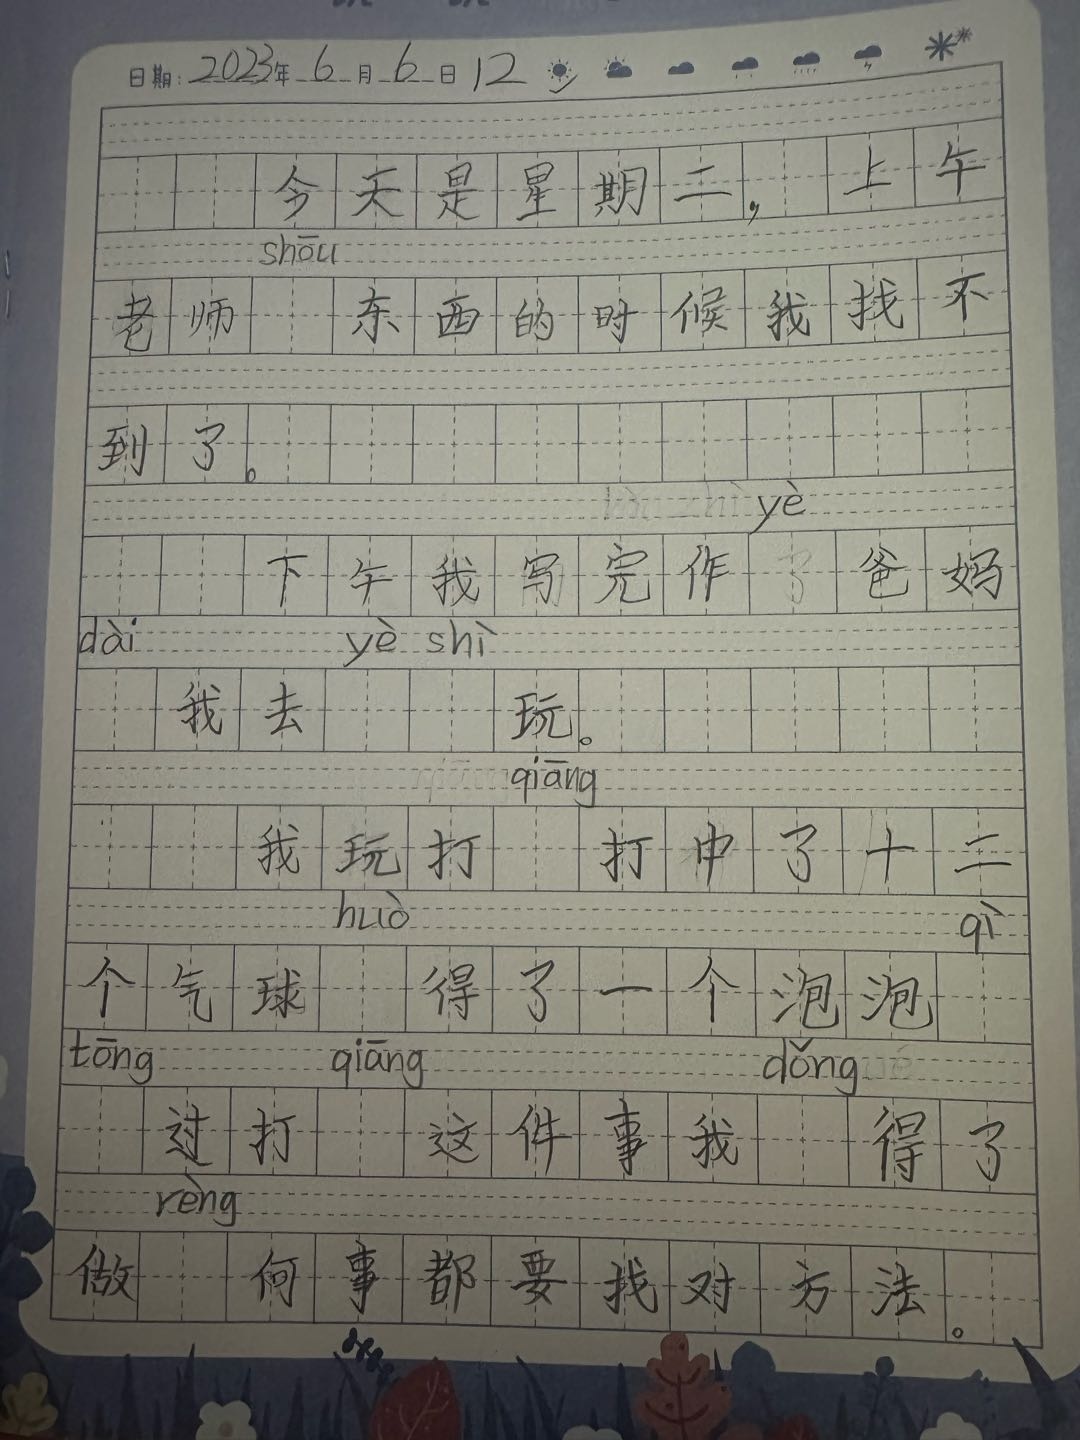 日期: 2023年 6 月 6 日 12
今天是星期二，上午
shōu
老师 东西的时候我找不
到了。
yè
下午我写完作 爸妈
dài yè shì
我去 玩。
qiāng
我玩打 打中了十二
huò qì
个气球 得了一个泡泡
tōng qiāng dǒng
过打 这件事我 得了
rèng
做 何事都要找对方法。